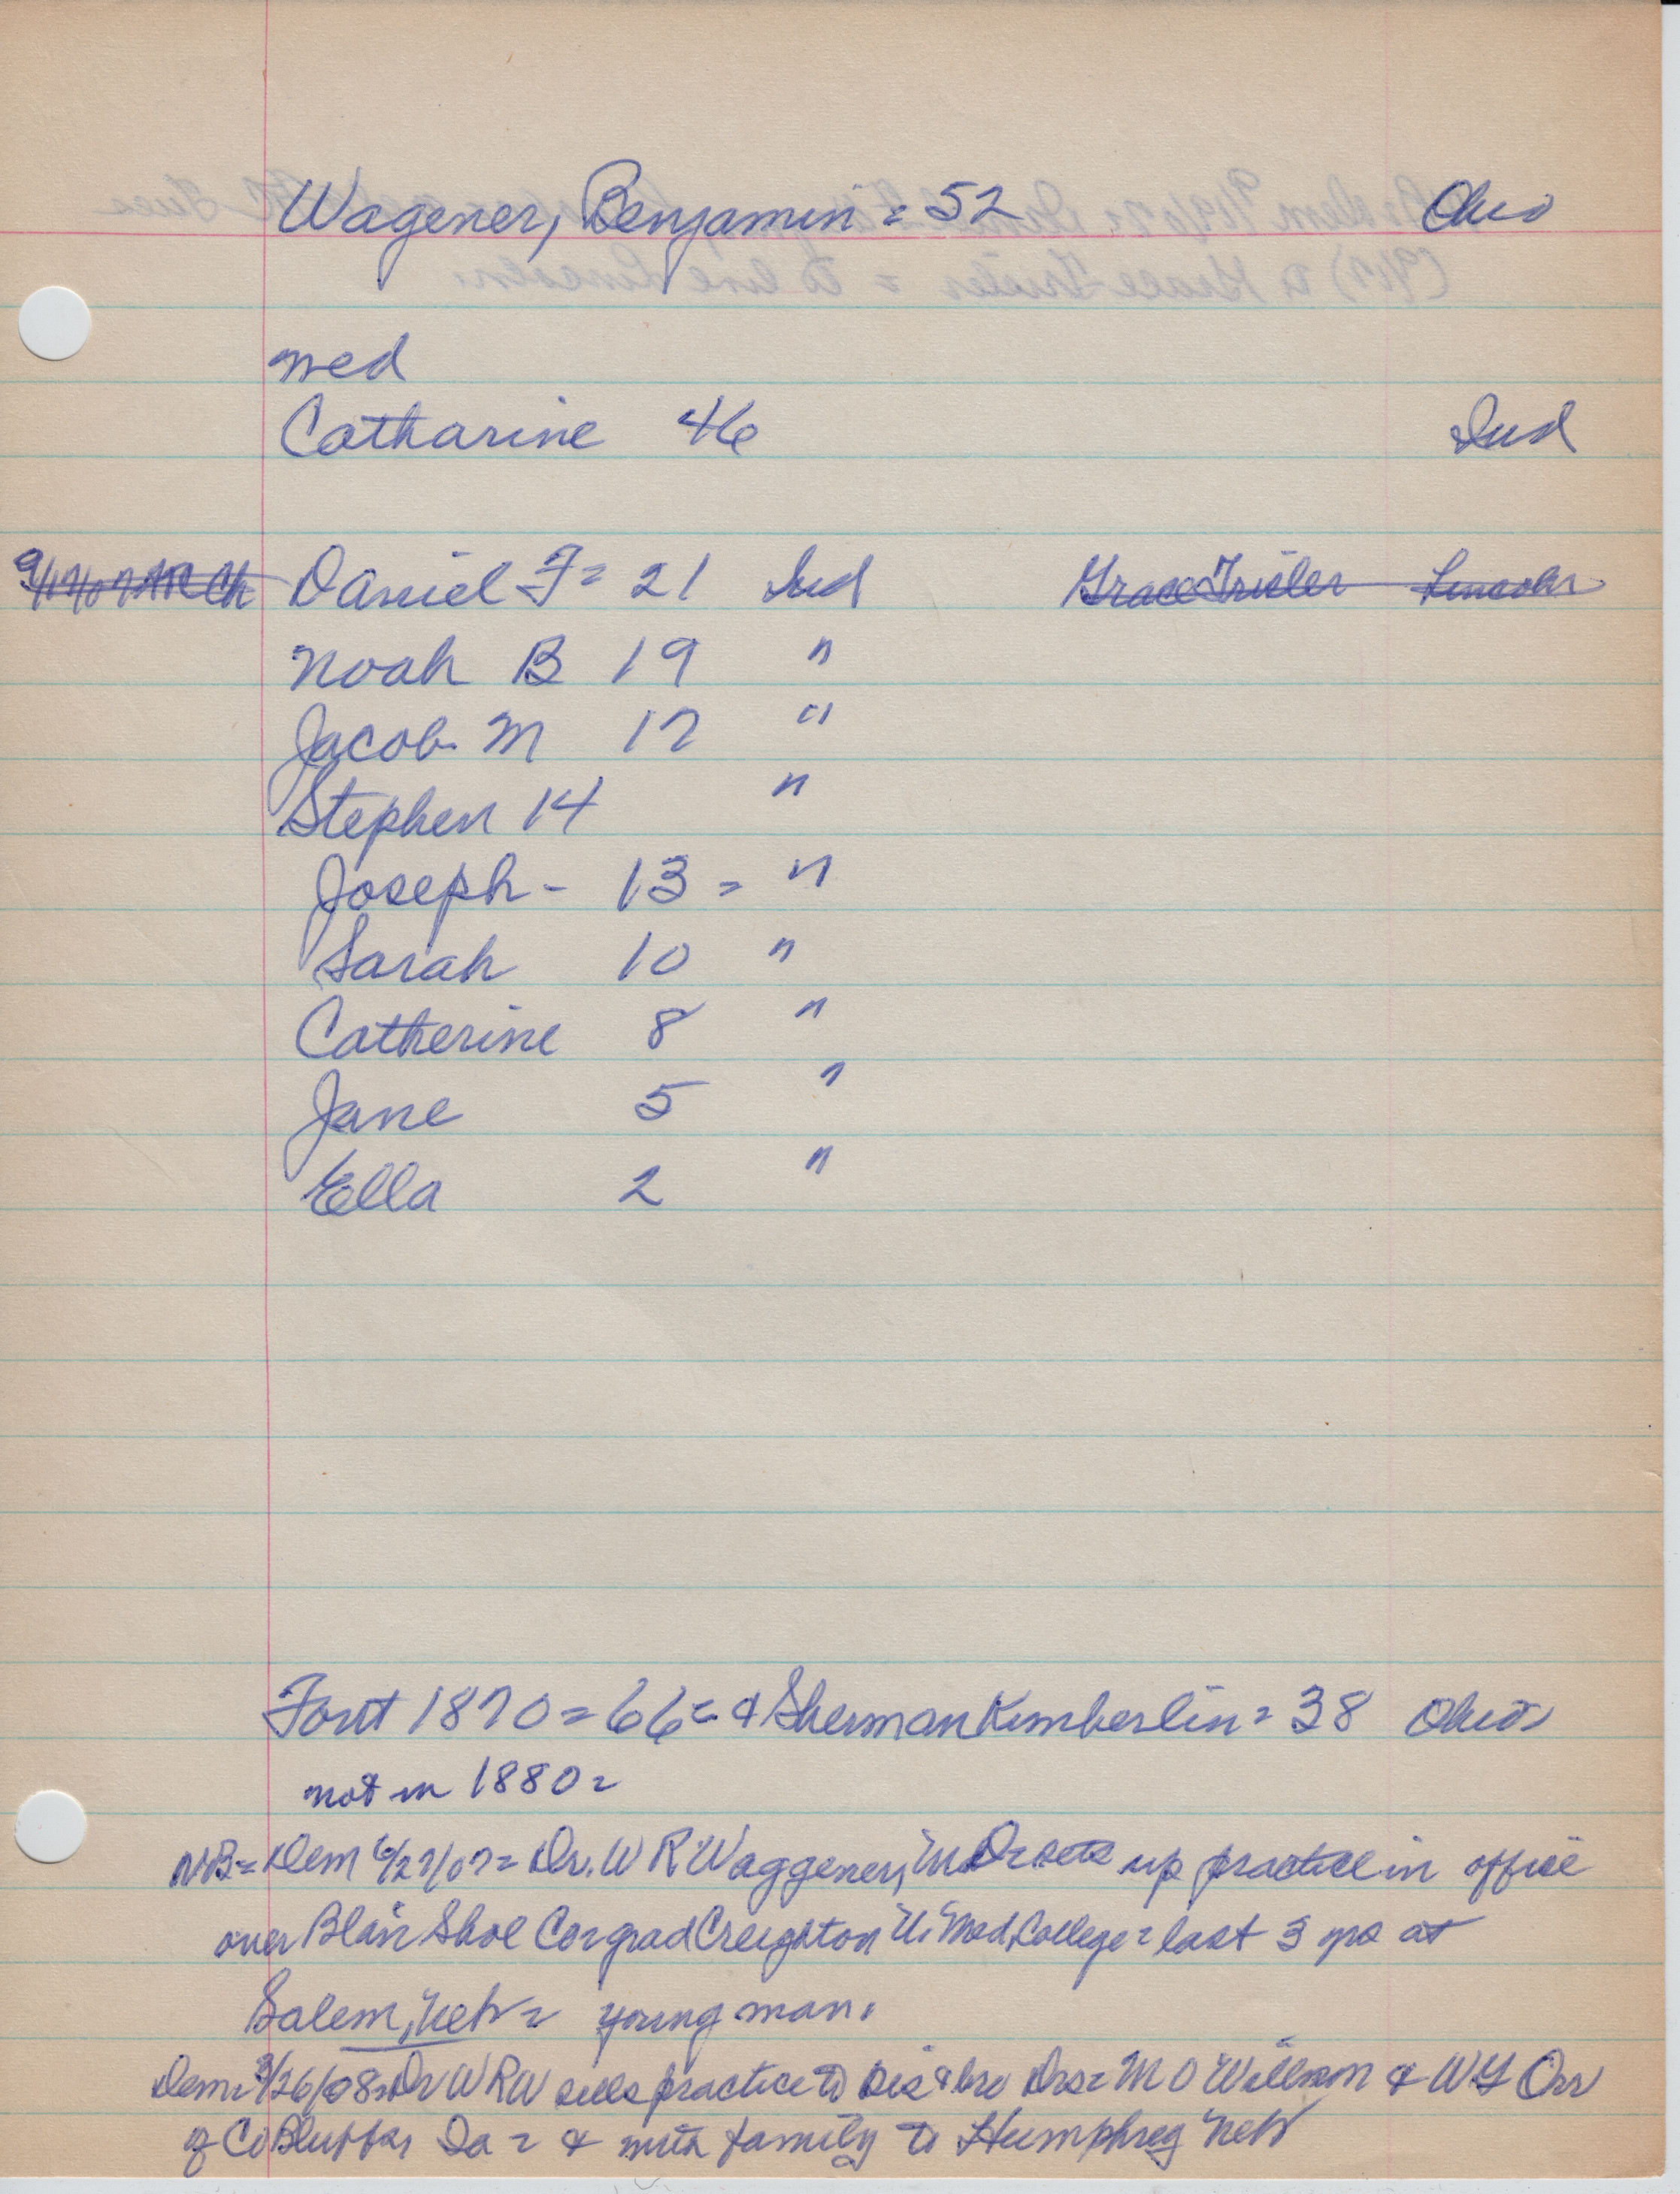 Wagener, Benjamin = 52 Ohio
med
Catharine 46 Ind
9/17/07 Daniel F = 21 Ind Grace Trisler Lincoln
Noah B 19 "
Jacob M 17 "
Stephen 14 "
Joseph - 13 = "
Sarah 10 "
Catherine 8 "
Jane 5 "
Ella 2 "
Font 1870 = 66 = & Sherman Kimberlin = 38 Ohio
not in 1880 =
NB = Dem 6/27/07 = Dr. W R Waggener, sets up practice in office
over Blair Shoe Co = grad Creighton U. Med. College = last 3 yrs at
Salem, Neb = young man.
Dem = 3/26/08 = Dr W R W sells practice to sis & bro Drs = M O Willson & W G Orr
of Co Bluffs, Ia = & with family to Humphrey Neb